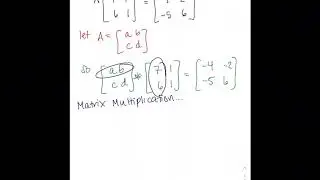 let A = [a b
c d]
so [a b
c d] * [7 1
6 1] = [-4 -2
-5 6]
Matrix Multiplication...